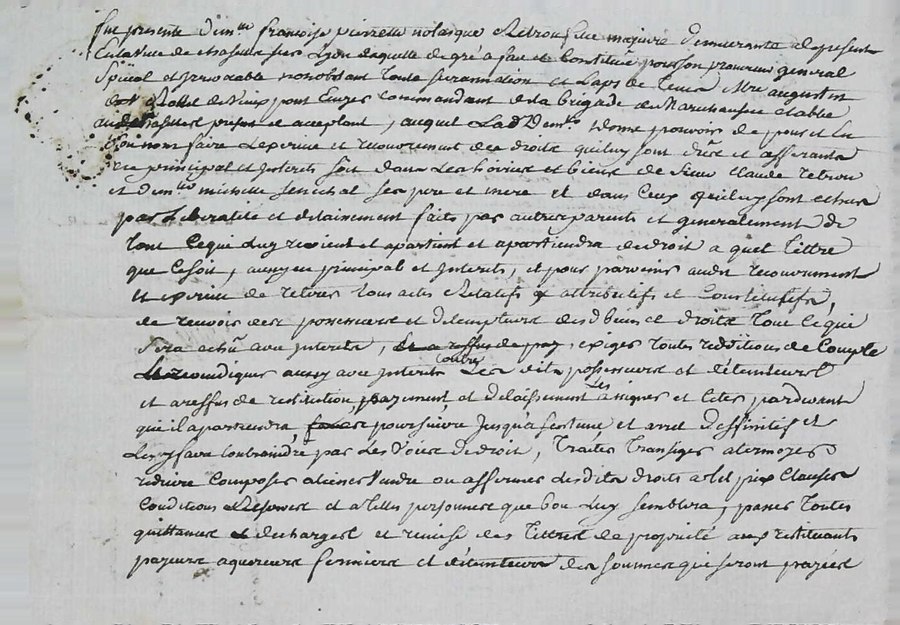 fut presente dem.lle françoise pierrette nolasque Retrou fille majeure demeurante a present
En la Ville de chaselle sur Lyon laquelle de gré a fait et Constitué pour son procureur general
Special et jrrevocable nonobstant toute surannation et Laps de tems M.re augustin
Rollet de Vieux pont Ecuyer commandant de la brigade de Marechaussée etablie
audit chaselles present et acceptant, auquel Lad. Dem.lle donne pouvoir de pour et En
Son nom faire Lexercice et recouvrement des droits qui luy sont dûs et afferants
en principal et jnterets soit dans Les hoiries et biens de Sieur Claude Retrou
et dem.lle michelle senechal ses pere et mere et dans Ceux qui luy sont echus
par Liberalité et delaissement faits par autres parents et generalement de
tout Ce qui Luy revient et apartient et apartiendra de droit a quel tittre
que Ce soit, aussy en principal et jnterets, et pour parvenir audit recouvrement
et exercice de retirer tous actes Relatifs attributifs et Constitutifs,
de recevoir des possesseurs et detempteurs desd. biens et droits tout Ce qui
sera echû avec jnterets, et a reffus de paÿ, exiger toutes redditions de Compte
revendiquer aussy avec jnterets contre Les dits possesseurs et détenteurs
et a reffus de restitution payement et delaissement Les assigner et Citer pardevant
qui il apartiendra poursuivre jusqu'a sentence et arret deffinitif et
Les y faire Contraindre par Les Voies de droit, Traiter Transiger atermoyer
reduire Composer aliener Vendre ou affermer desdits droits a tel prix Clauses
Conditions Reserves et a telles personnes que bon Luy semblera, passer toutes
quittances et decharges et remise des tittres de propriété aux restituants
payeurs aquereurs fermiers et détenteurs des sommes qui seront payées